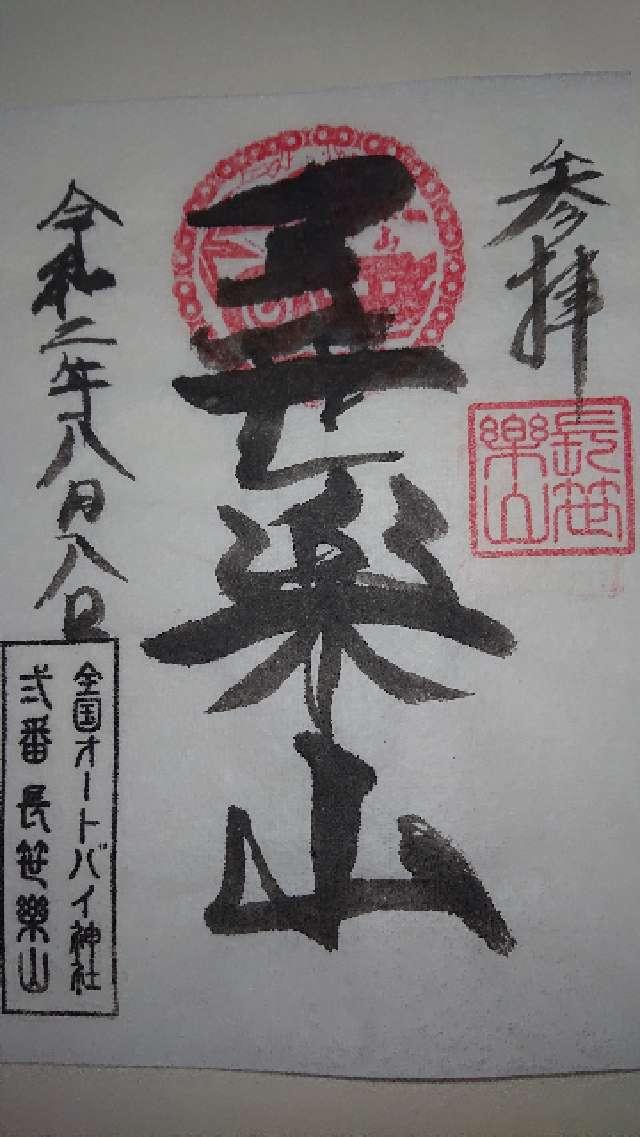 参拝
長笹樂山
長笹樂山
令和二年八月八日
全国オートバイ神社
弐番 長笹樂山